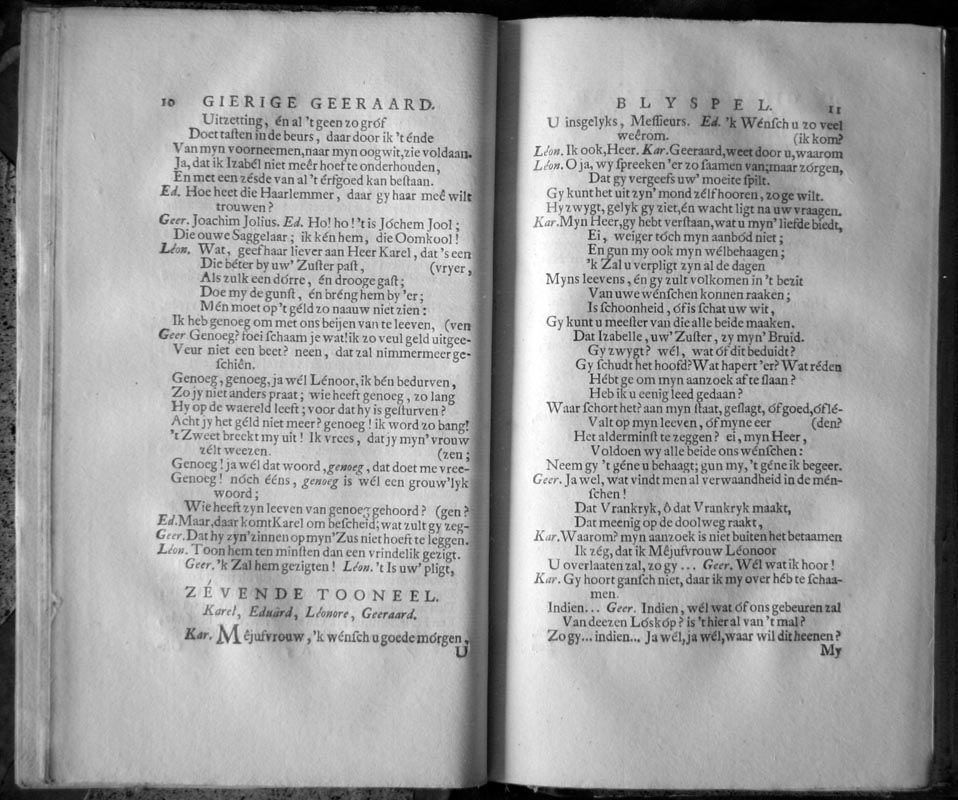 10 GIERIGE GEERAARD.
Uitzetting, én al 't geen zo gróf
Doet taſten in de beurs, daar door ik 't énde
Van myn voorneemen, naar myn oogwit, zie voldaan.
Ja, dat ik Izabél niet meêr hoef te onderhouden,
En met een zésde van al 't érfgoed kan beſtaan.
Ed. Hoe heet die Haarlemmer, daar gy haar meê wilt
trouwen?
Geer. Joachim Jolius. Ed. Ho! ho! 't is Jóchem Jool;
Die ouwe Saggelaar; ik kén hem, die Oomkool!
Léon. Wat, geef haar liever aan Heer Karel, dat 's een
Die béter by uw' Zuſter paſt, (vryer,
Als zulk een dórre, én drooge gaſt;
Doe my de gunſt, én bréng hem by 'er;
Mén moet op 't géld zo naauw niet zien:
Ik heb genoeg om met ons beijen van te leeven, (ven
Geer Genoeg? foei ſchaam je wat! ik zo veul geld uitgee-
Veur niet een beet? neen, dat zal nimmermeer ge-
ſchiên.
Genoeg, genoeg, ja wél Lénoor, ik bén bedurven,
Zo jy niet anders praat; wie heeft genoeg, zo lang
Hy op de waereld leeft; voor dat hy is geſturven?
Acht jy het géld niet meer? genoeg! ik word zo bang!
't Zweet breekt my uit! Ik vrees, dat jy myn' vrouw
zélt weezen. (zen;
Genoeg! ja wél dat woord, genoeg, dat doet me vree-
Genoeg! nóch ééns, genoeg is wél een grouw'lyk
woord;
Wie heeft zyn leeven van genoeg gehoord? (gen?
Ed. Maar, daar komt Karel om beſcheid; wat zult gy zeg-
Geer. Dat hy zyn' zinnen op myn' Zus niet hoeft te leggen.
Léon. Toon hem ten minſten dan een vrindelik gezigt.
Geer. 'k Zal hem gezigten! Léon. 't Is uw' pligt,
ZÉVENDE TOONEEL.
Karel, Eduard, Léonore, Geeraard.
Kar. Mêjufvrouw, 'k wénſch u goede mórgen,
U
BLYSPEL. 11
U insgelyks, Meſſieurs. Ed. 'k Wénſch u zo veel
weêrom. (ik kom?
Léon. Ik ook, Heer. Kar. Geeraard, weet door u, waarom
Léon. O ja, wy ſpreeken 'er zo ſaamen van; maar zórgen,
Dat gy vergeefs uw' moeite ſpilt.
Gy kunt het uit zyn' mond zélf hooren, zo ge wilt.
Hy zwygt, gelyk gy ziet, én wacht ligt na uw vraagen.
Kar. Myn Heer, gy hebt verſtaan, wat u myn' liefde biedt,
Ei, weiger tóch myn aanbód niet;
En gun my ook myn wélbehaagen;
'k Zal u verpligt zyn al de dagen
Myns leevens, én gy zult volkomen in 't bezit
Van uwe wénſchen konnen raaken;
Is ſchoonheid, óf is ſchat uw wit,
Gy kunt u meeſter van die alle beide maaken.
Dat Izabelle, uw' Zuſter, zy myn' Bruid.
Gy zwygt? wél, wat óf dit beduidt?
Gy ſchudt het hoofd? Wat hapert 'er? Wat réden
Hébt ge om myn aanzoek af te ſlaan?
Heb ik u eenig leed gedaan?
Waar ſchort het? aan myn ſtaat, geſlagt, óf goed, óf lé-
Valt op myn leeven, óf myne eer (den?
Het alderminſt te zeggen? ei, myn Heer,
Voldoen wy alle beide ons wénſchen:
Neem gy 't géne u behaagt; gun my, 't géne ik begeer.
Geer. Ja wel, wat vindt men al verwaandheid in de mén-
ſchen!
Dat Vrankryk, ô dat Vrankryk maakt,
Dat meenig op de doolweg raakt,
Kar. Waarom? myn aanzoek is niet buiten het betaamen
Ik zég, dat ik Mêjufvrouw Léonoor
U overlaaten zal, zo gy... Geer. Wél wat ik hoor!
Kar. Gy hoort ganſch niet, daar ik my over héb te ſchaa-
men.
Indien... Geer. Indien, wél wat óf ons gebeuren zal
Van deezen Lóskóp? is 't hier al van 't mal?
Zo gy... indien... Ja wél, ja wél, waar wil dit heenen?
My